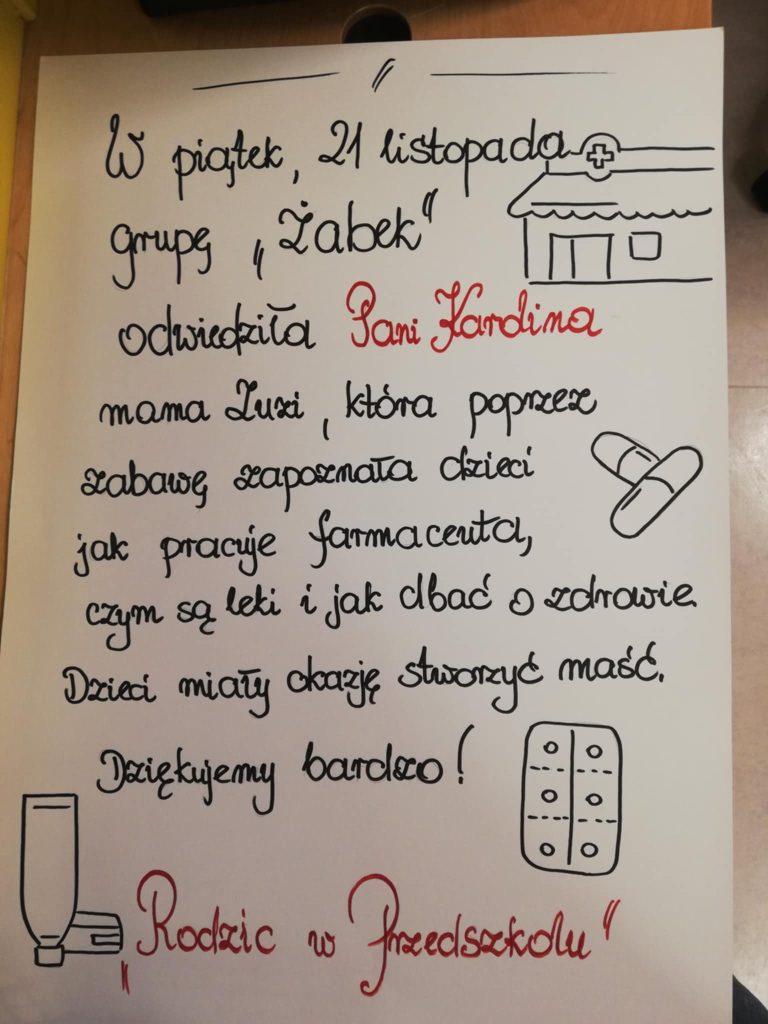 W piątek, 21 listopada
grupę „Żabek"
odwiedziła Pani Kardina
mama Zuzi, która poprzez
zabawę zapoznała dzieci
jak pracuje farmaceuta,
czym są leki i jak dbać o zdrowie.
Dzieci miały okazję stworzyć maść.
Dziękujemy bardzo!
„Rodzic w Przedszkolu"